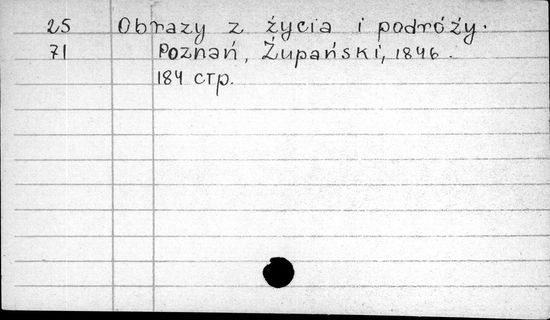 25 Obrazy z życia i podróży.
71 Poznań, Żupański, 1846.
184 стр.